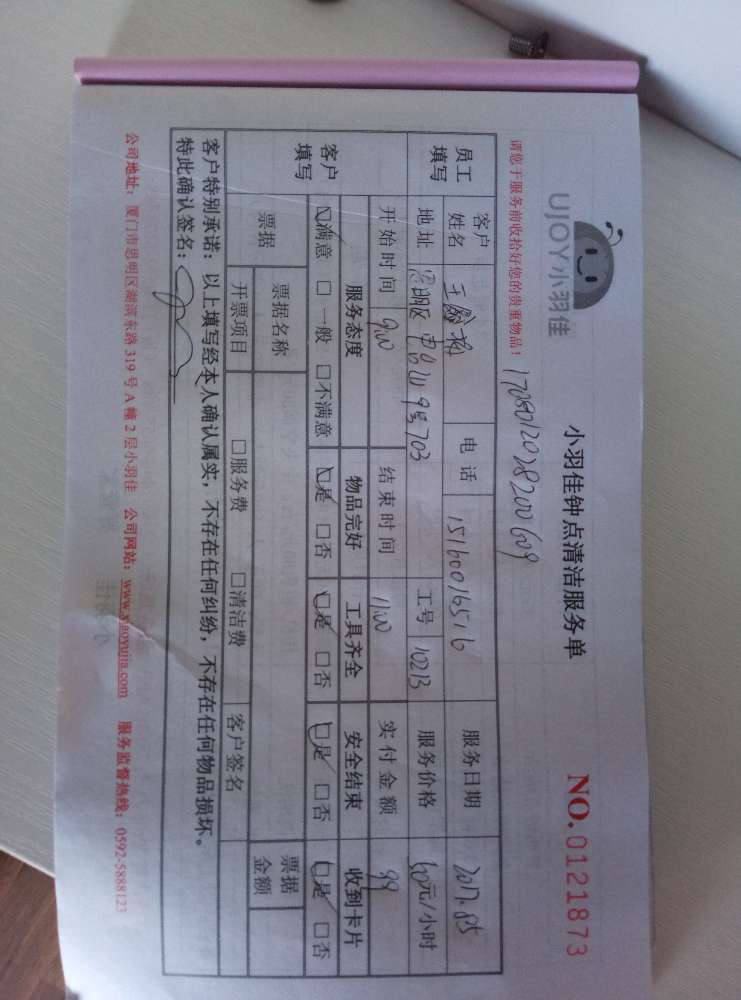 UJOY小羽佳
小羽佳钟点清洁服务单
NO.0121873
请您于服务前收拾好您的贵重物品!
1708012028200609
员工填写
客户姓名 王 电话 15160016516 服务日期 2017.8.5
地址 思明区 9号703 工号 10213 服务价格 60元/小时
开始时间 9:00 结束时间 11:00 实付金额 99
客户填写
服务态度 物品完好 工具齐全 安全结束 收到卡片
☑满意 □一般 □不满意 ☑是 □否 ☑是 □否 ☑是 □否 ☑是 □否
票据 票据名称 票据金额
开票项目 □服务费 □清洁费 客户签名
客户特别承诺:以上填写经本人确认属实,不存在任何纠纷,不存在任何物品损坏。
特此确认签名:
公司地址:厦门市思明区湖滨东路 319 号 A 幢 2 层小羽佳 公司网站:www.xiaoyujia.com 服务监督热线:0592-5888123